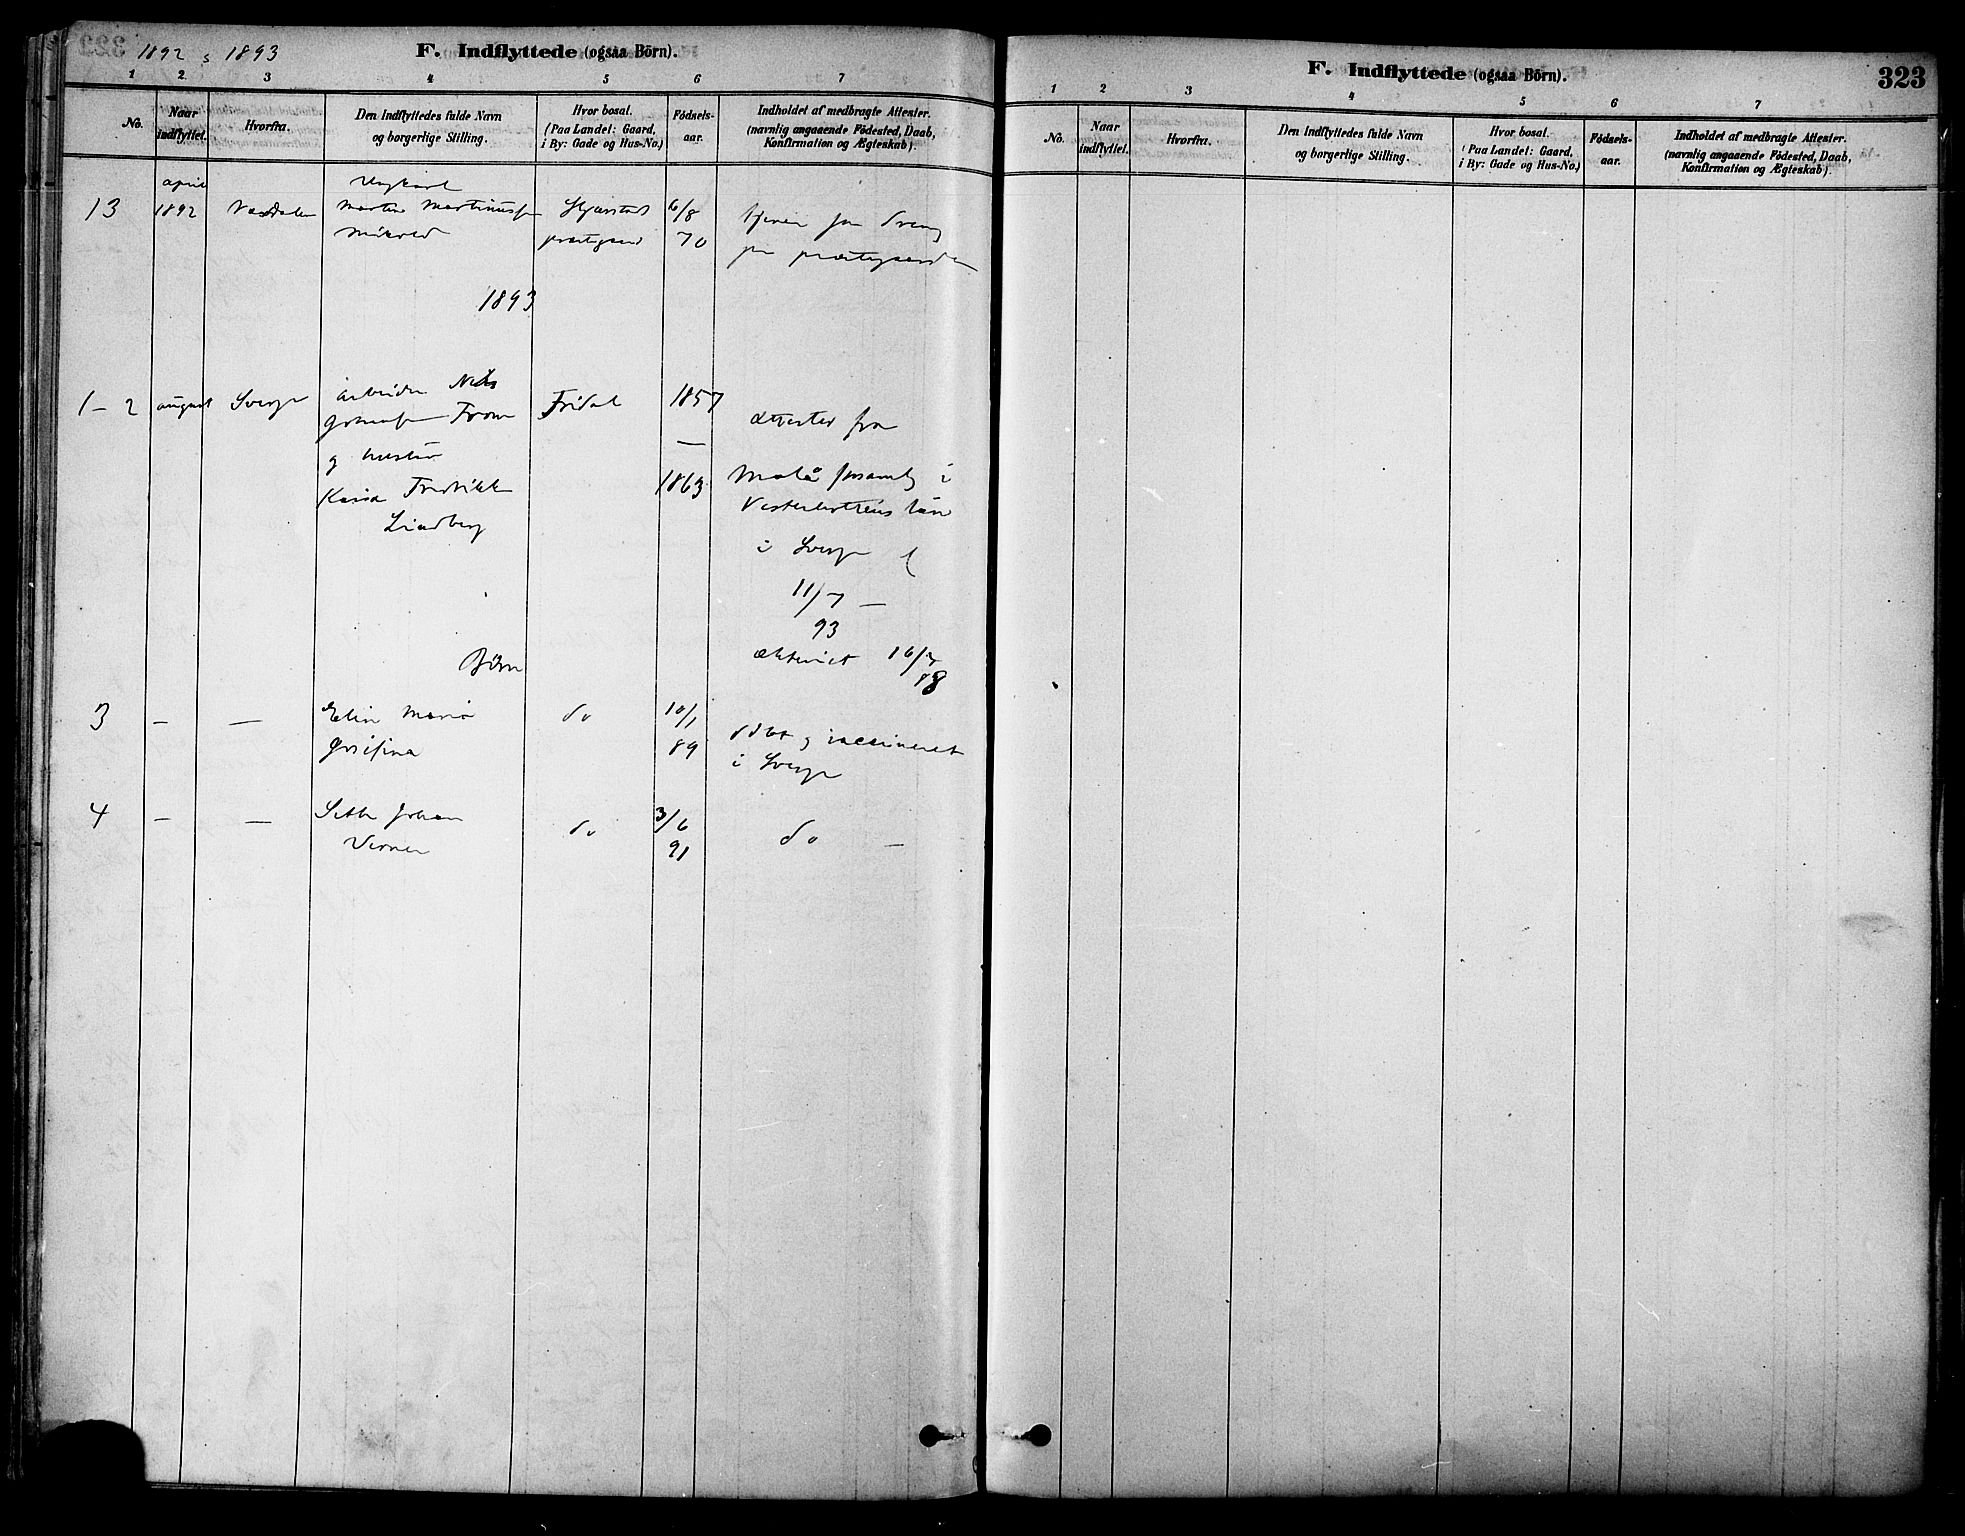 1892 & 1893
F. Indflyttede (ogsaa Börn).
1 2 3 4 5 6 7
No.
Naar indflyttet.
Hvorfra.
Den Indflyttedes fulde Navn
og borgerlige Stilling.
Hvor bosat.
(Paa Landet: Gaard,
i By: Gade og Hus-No.)
Födsels-
aar.
Indholdet af medbragte Attester.
(navnlig angaaende Födested, Daab,
Konfirmation og Ægteskab).
13
april
1892
Ungkarl
Martin Martinussen
prestgaard
6/8
70
tjener som dreng
paa prestegaarden
1893
1-2
august
Sverge
arbeider Nils
From
og hustru
Fredrikke
Lindberg
Fridal
1857
—
1863
Attester fra
Malå forsamlg i
Vesterbottens län
i Sverge
11/7 —
93
Börn
3
—
—
Elin Maria
Josefina
do
10/1
89
döbt og vaccineret
i Sverge
4
—
—
Seth Johan
Verner
do
3/6
91
do —
F. Indflyttede (ogsaa Börn).
323
1 2 3 4 5 6 7
No.
Naar indflyttet.
Hvorfra.
Den Indflyttedes fulde Navn
og borgerlige Stilling.
Hvor bosat.
(Paa Landet: Gaard,
i By: Gade og Hus-No.)
Födsels-
aar.
Indholdet af medbragte Attester.
(navnlig angaaende Födested, Daab,
Konfirmation og Ægteskab).